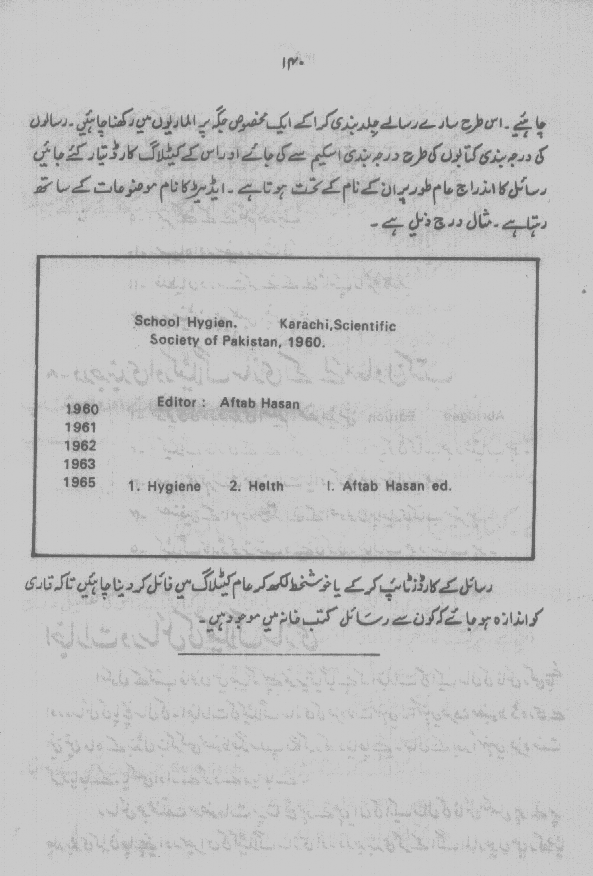 ۱۴۰
چاہئیے ۔ اس طرح سارے رسالے جلد بندی کرا کے ایک مخصوص جگہ پر الماریوں میں رکھنا چاہئیں ۔ رسالوں
کی درجہ بندی کتابوں کی طرح درجہ بندی اسکیم سے کی جائے اور اس کے کیٹلاگ کارڈ تیار کئے جائیں
رسائل کا اندراج عام طور پر ان کے نام کے تحت ہوتا ہے ۔ ایڈیٹر کا نام موضوعات کے ساتھ
رہتا ہے ۔ مثال درج ذیل ہے ۔
School Hygien. Karachi,Scientific
Society of Pakistan, 1960.
Editor : Aftab Hasan
1960
1961
1962
1963
1965 1. Hygiene 2. Helth I. Aftab Hasan ed.
رسائل کے کارڈز ٹائپ کر کے یا خوشخط لکھ کر عام کیٹلاگ میں فائل کر دینا چاہئیں تاکہ قاری
کو اندازہ ہو جائے کہ کون سے رسائل کتب خانہ میں موجود ہیں ۔